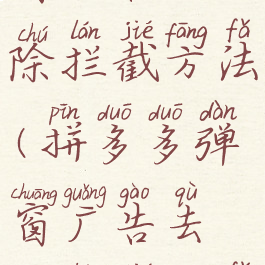 chú lán jié fāng fǎ
除拦截方法
pīn duō duō dàn
(拼多多弹
chuāng guǎng gào qù
窗广告去